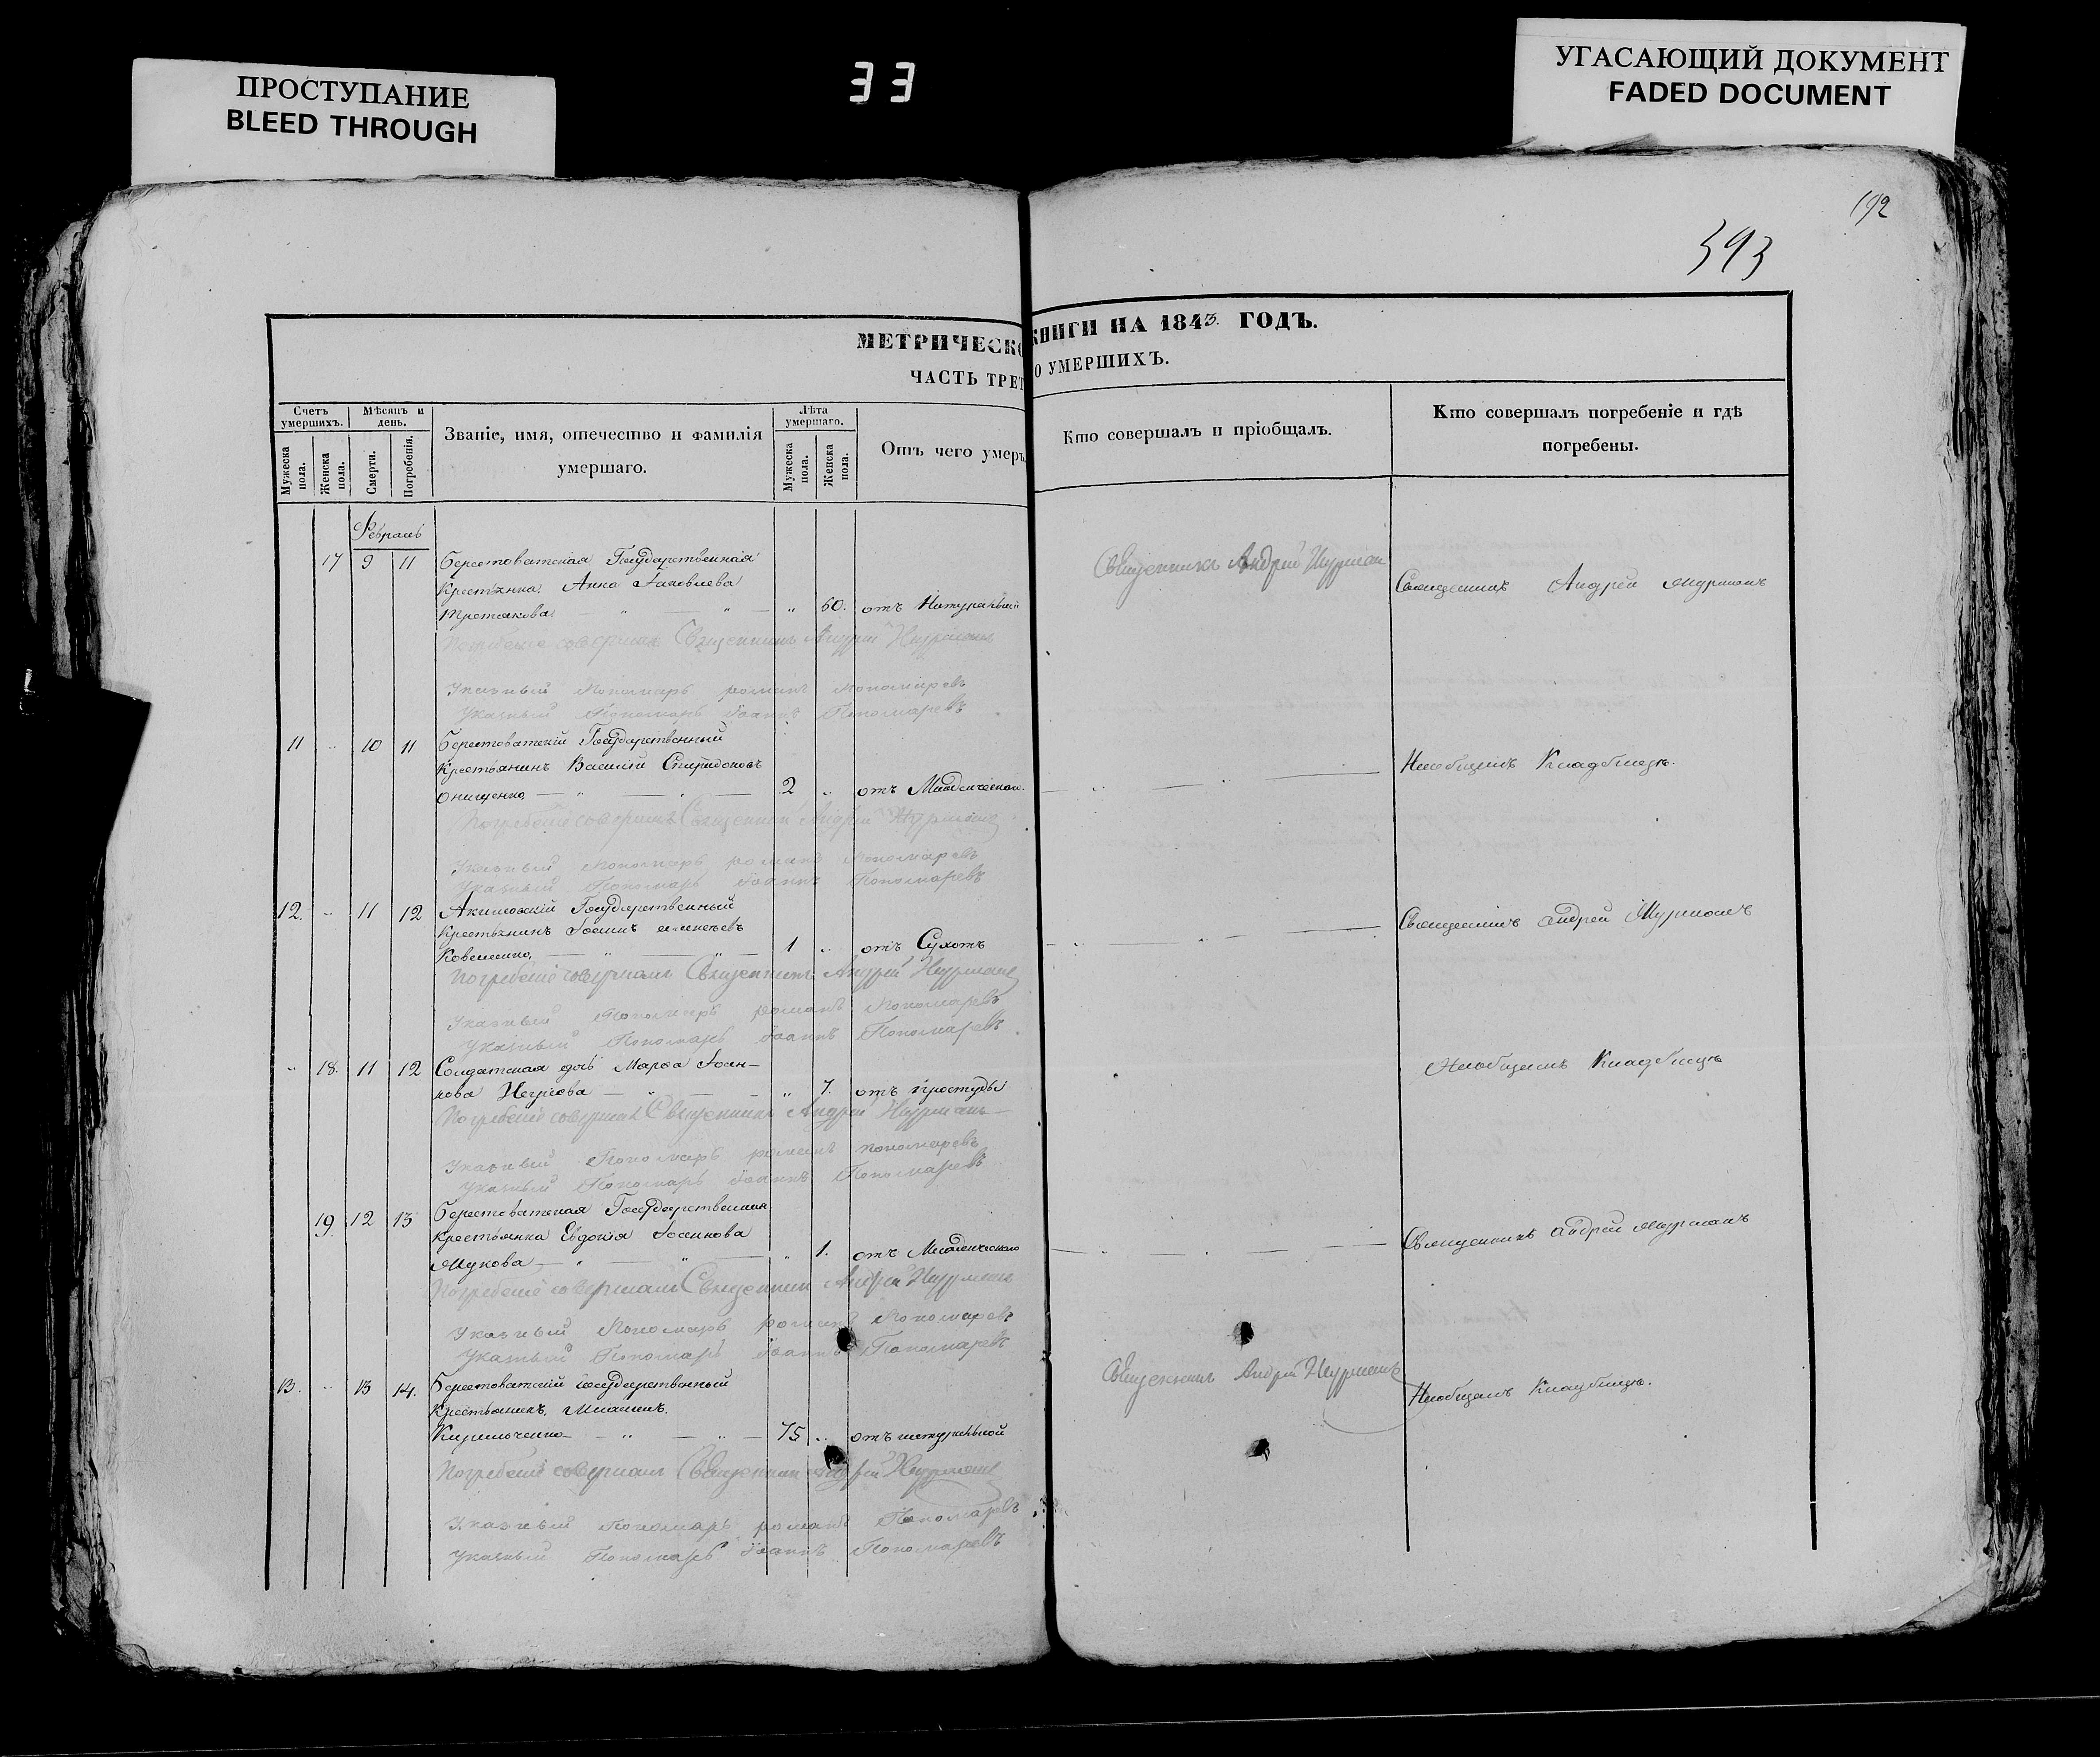 ПРОСТУПАНИЕ
BLEED THROUGH
33
УГАСАЮЩИЙ ДОКУМЕНТ
FADED DOCUMENT
192
393
МЕТРИЧЕСКО КНИГИ НА 1843. ГОДЪ.
ЧАСТЬ ТРЕТ О УМЕРШИХЪ.
Счетъ умершихъ.
Мѣсяцъ и день.
Званіе, имя, отечество и фамилія умершаго.
Лѣта умершаго.
Отъ чего умеръ.
Кто совершалъ и пріобщалъ.
Кто совершалъ погребеніе и гдѣ погребены.
Мужеска пола.
Женска пола.
Смерти.
Погребенія.
Мужеска пола.
Женска пола.
Февраль
17 9 11 Берестоватская Государственная
Крестьянка Анна Іаковлева
Третьякова — „ — „ — „ 60. отъ Натуральной
Священникъ Андрей Нурман
Священникъ Андрей Нурманъ
Погребеніе совершалъ Священникъ Андрей Нурманъ
Указный Пономарь романъ Пономаревъ
Указный Пономарь Іоаннъ Пономаревъ
11 „ 10 11 Берестоватскій Государственный
Крестьянинъ Василій Спиридоновъ
Онищенко — „ — „ — 2 „ отъ Младенческой.
На общемъ Кладбищѣ.
Погребеніе совершалъ Священникъ Андрей Нурманъ
Указный Пономарь романъ Пономаревъ
Указный Пономарь Іоаннъ Пономаревъ
12. „ 11 12 Акимовскій Государственный
Крестьянинъ Іоаннъ
— „ — „ — 1 „ отъ Сухотъ
Священникъ Андрей Нурманъ
Погребеніе совершалъ Священникъ Андрей Нурманъ
Указный Пономарь романъ Пономаревъ
Указный Пономарь Іоаннъ Пономаревъ
„ 18. 11 12 Солдатская дочь Марѳа Іоан-
нова — „ — „ 7. отъ простуды
На общемъ Кладбищѣ
Погребеніе совершалъ Священникъ Андрей Нурманъ
Указный Пономарь романъ Пономаревъ
Указный Пономарь Іоаннъ Пономаревъ
19. 12 13 Берестоватская Государственная
Крестьянка Евдокія
Жукова — „ — „ — „ 1. отъ Младенческой
Священникъ Андрей Нурманъ
Погребеніе совершалъ Священникъ Андрей Нурманъ
Указный Пономарь романъ Пономаревъ
Указный Пономарь Іоаннъ Пономаревъ
13. „ 13 14. Берестоватскій Государственный
Крестьянинъ
Кирильченко — „ — „ — 75 „ отъ натуральной
Священникъ Андрей Нурманъ
На общемъ Кладбищѣ.
Погребеніе совершалъ Священникъ Андрей Нурманъ
Указный Пономарь романъ Пономаревъ
Указный Пономарь Іоаннъ Пономаревъ